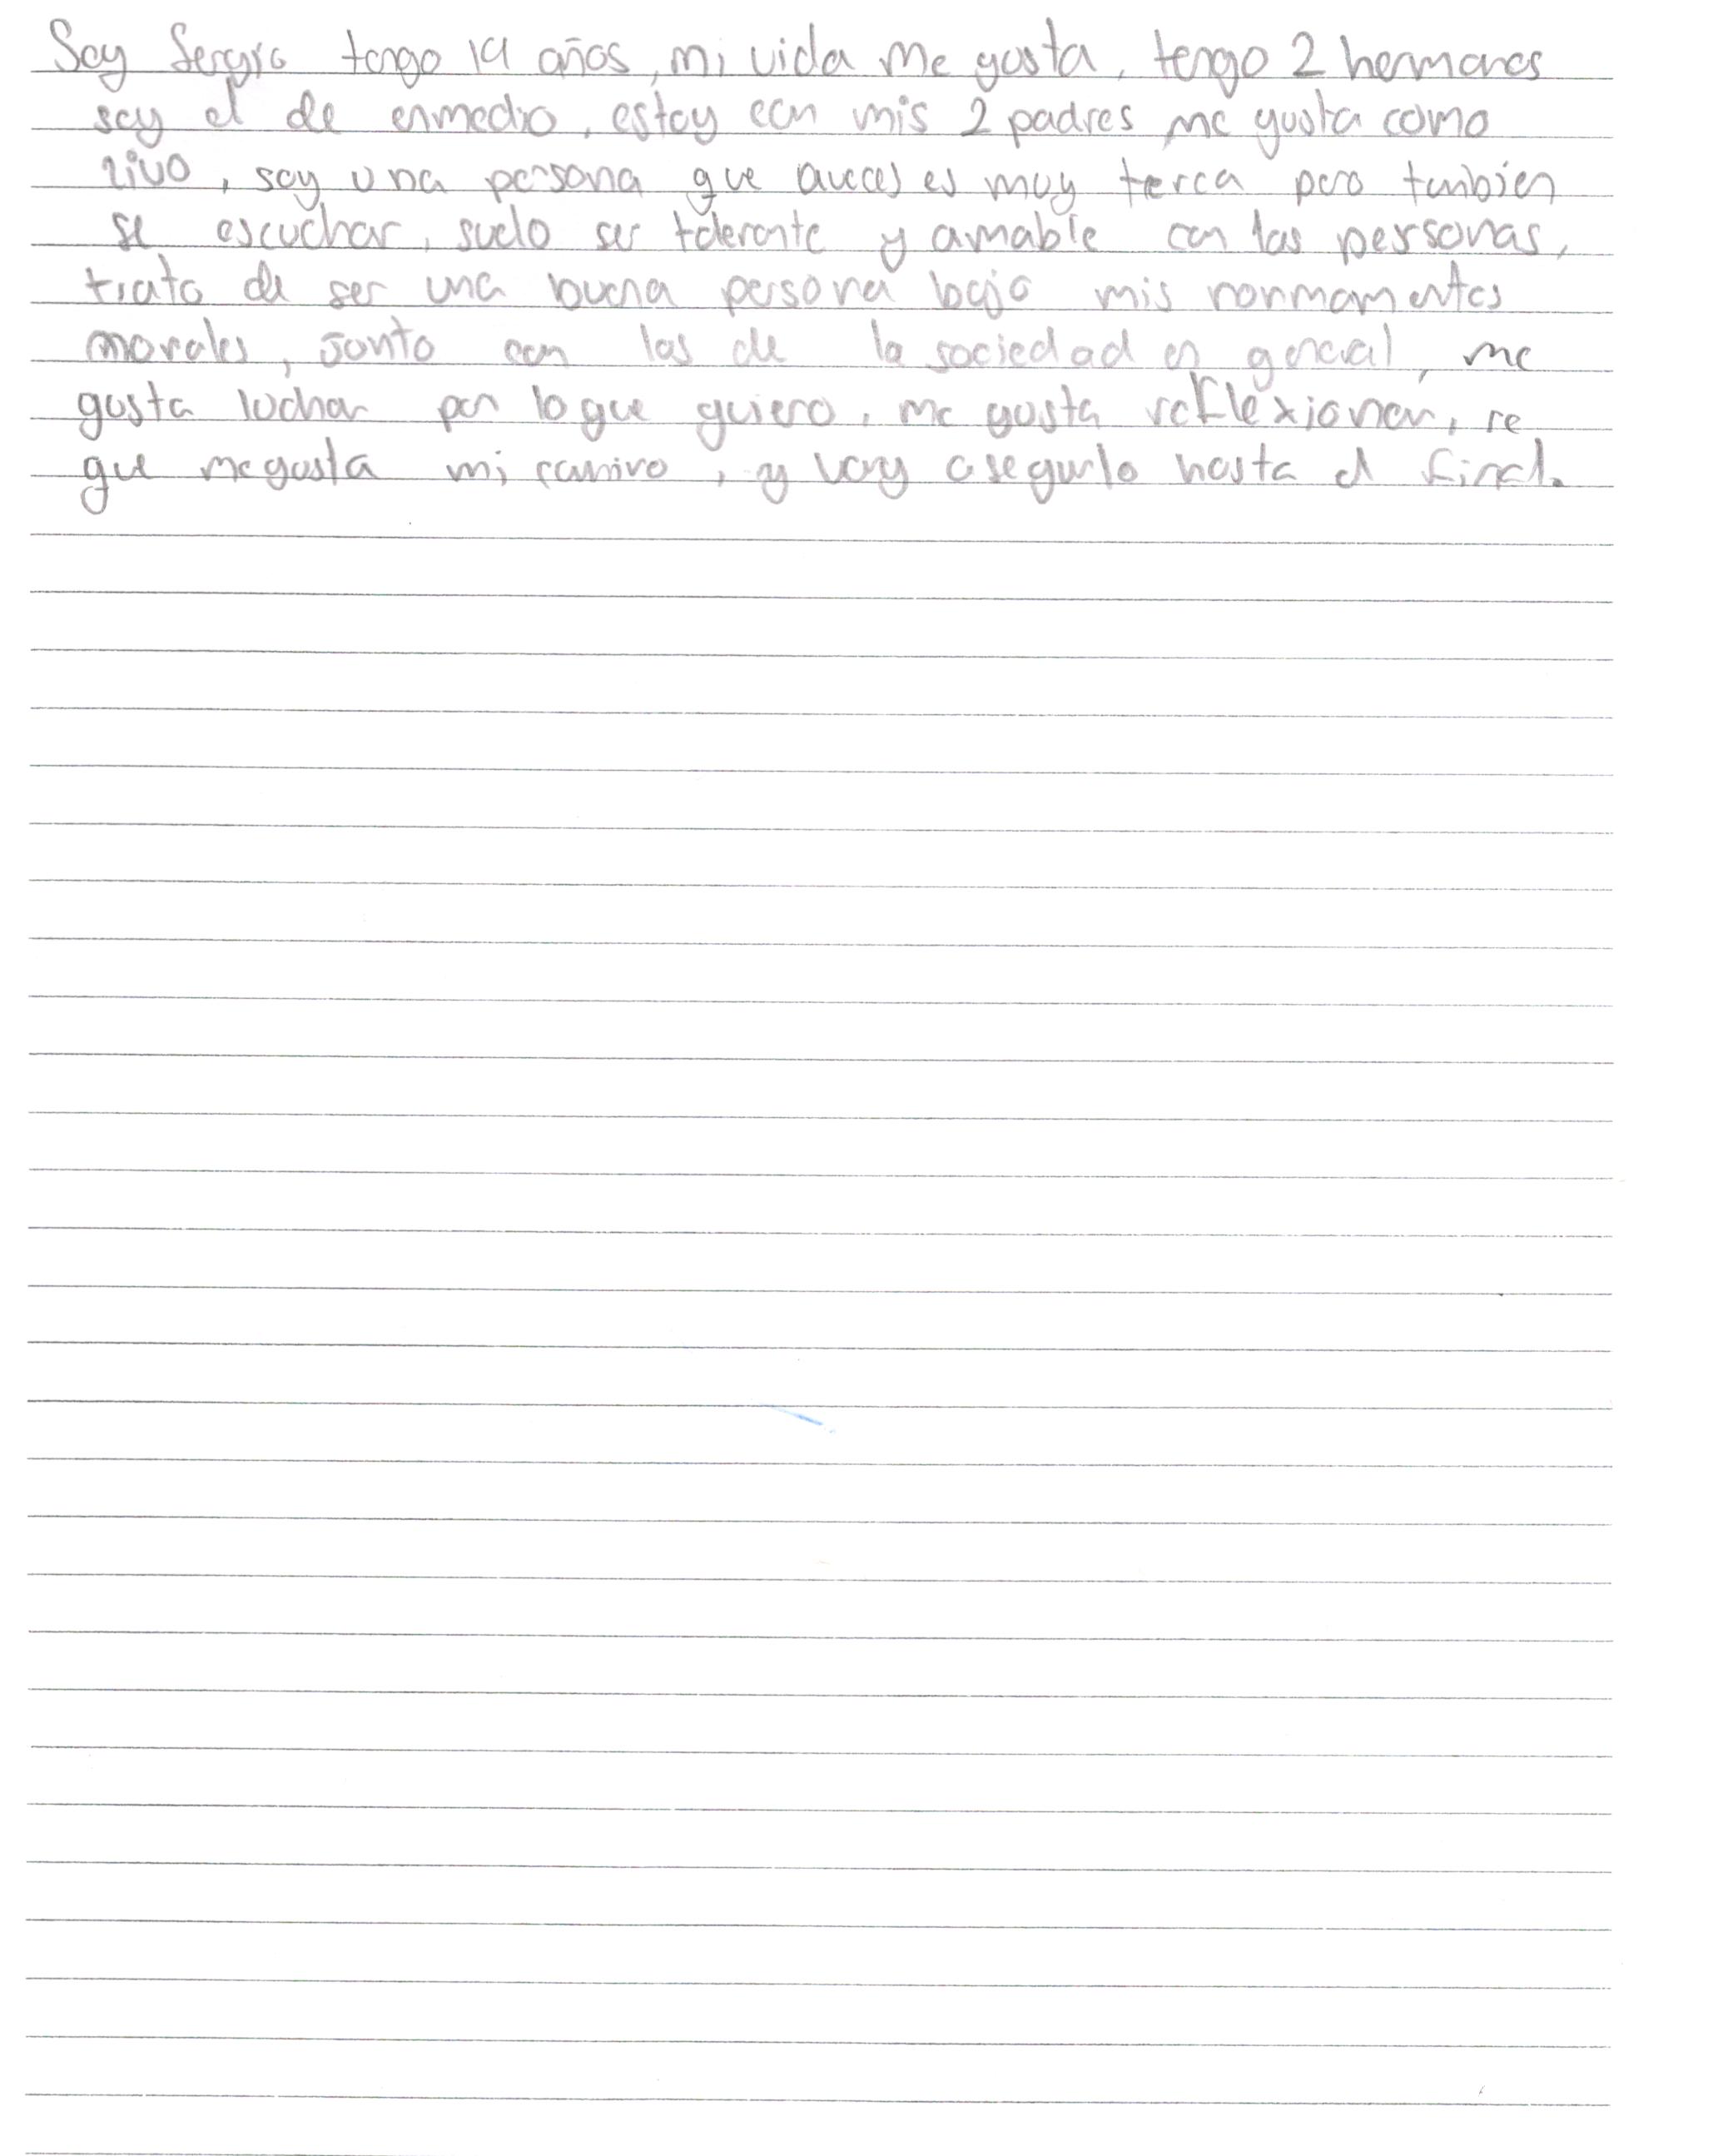 Soy Sergio tengo 19 años, mi vida me gusta, tengo 2 hermanos
soy el de enmedio, estoy con mis 2 padres me gusta como
vivo, soy una persona que aveces es muy terca pero tambien
se escuchar, suelo ser tolerante y amable con las personas,
trato de ser una buena persona bajo mis
morales, junto con los de la sociedad en general, me
gusta luchar por lo que quiero, me gusta reflexionar, se
que me gusta mi camino, y voy a seguirlo hasta el final.